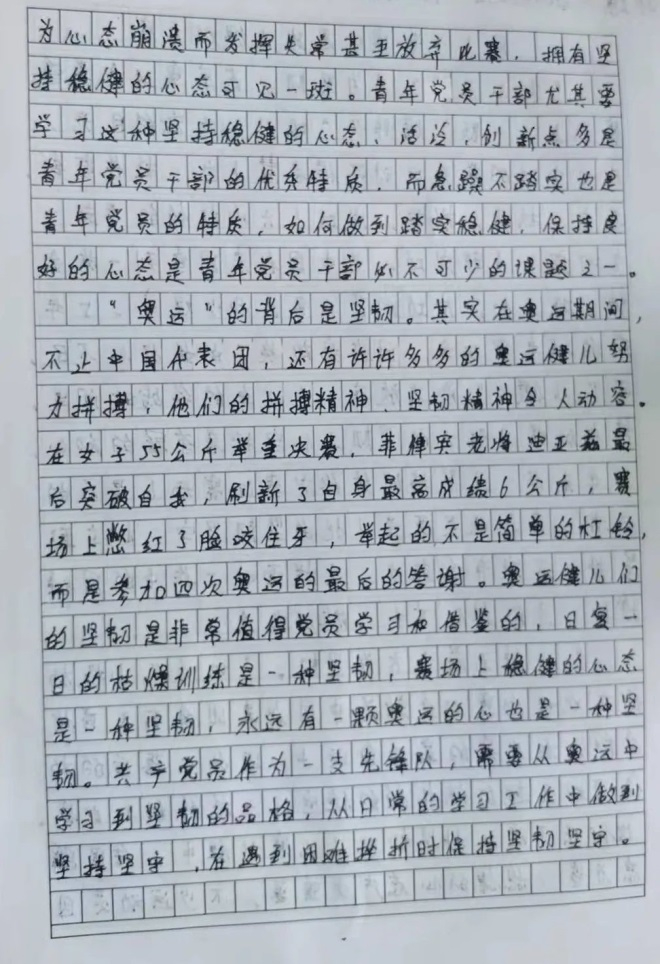 为心态崩溃而发挥失常甚至放弃比赛，拥有坚
持稳健的心态可见一斑。青年党员干部尤其需
学习这种坚持稳健的心态、活泼，创新点多是
青年党员干部的优秀特质，而急躁不踏实也是
青年党员的特质，如何做到踏实稳健，保持良
好的心态是青年党员干部必不可少的课题之一。
“奥运”的背后是坚韧。其实在奥运期间，
不止中国代表团，还有许许多多的奥运健儿努
力拼搏，他们的拼搏精神、坚韧精神令人动容。
在女子55公斤举重决赛，菲律宾老将迪亚兹最
后突破自我，刷新了自身最高成绩6公斤，赛
场上憋红了脸咬住牙，举起的不是简单的杠铃，
而是参加四次奥运的最后的答谢。奥运健儿们
的坚韧是非常值得党员学习和借鉴的，日复一
日的枯燥训练是一种坚韧，赛场上稳健的心态
是一种坚韧，永远有一颗奥运的心也是一种坚
韧。共产党员作为一支先锋队，需要从奥运中
学习到坚韧的品格，从日常的学习工作中做到
坚持坚守，在遇到困难挫折时保持坚韧坚守。